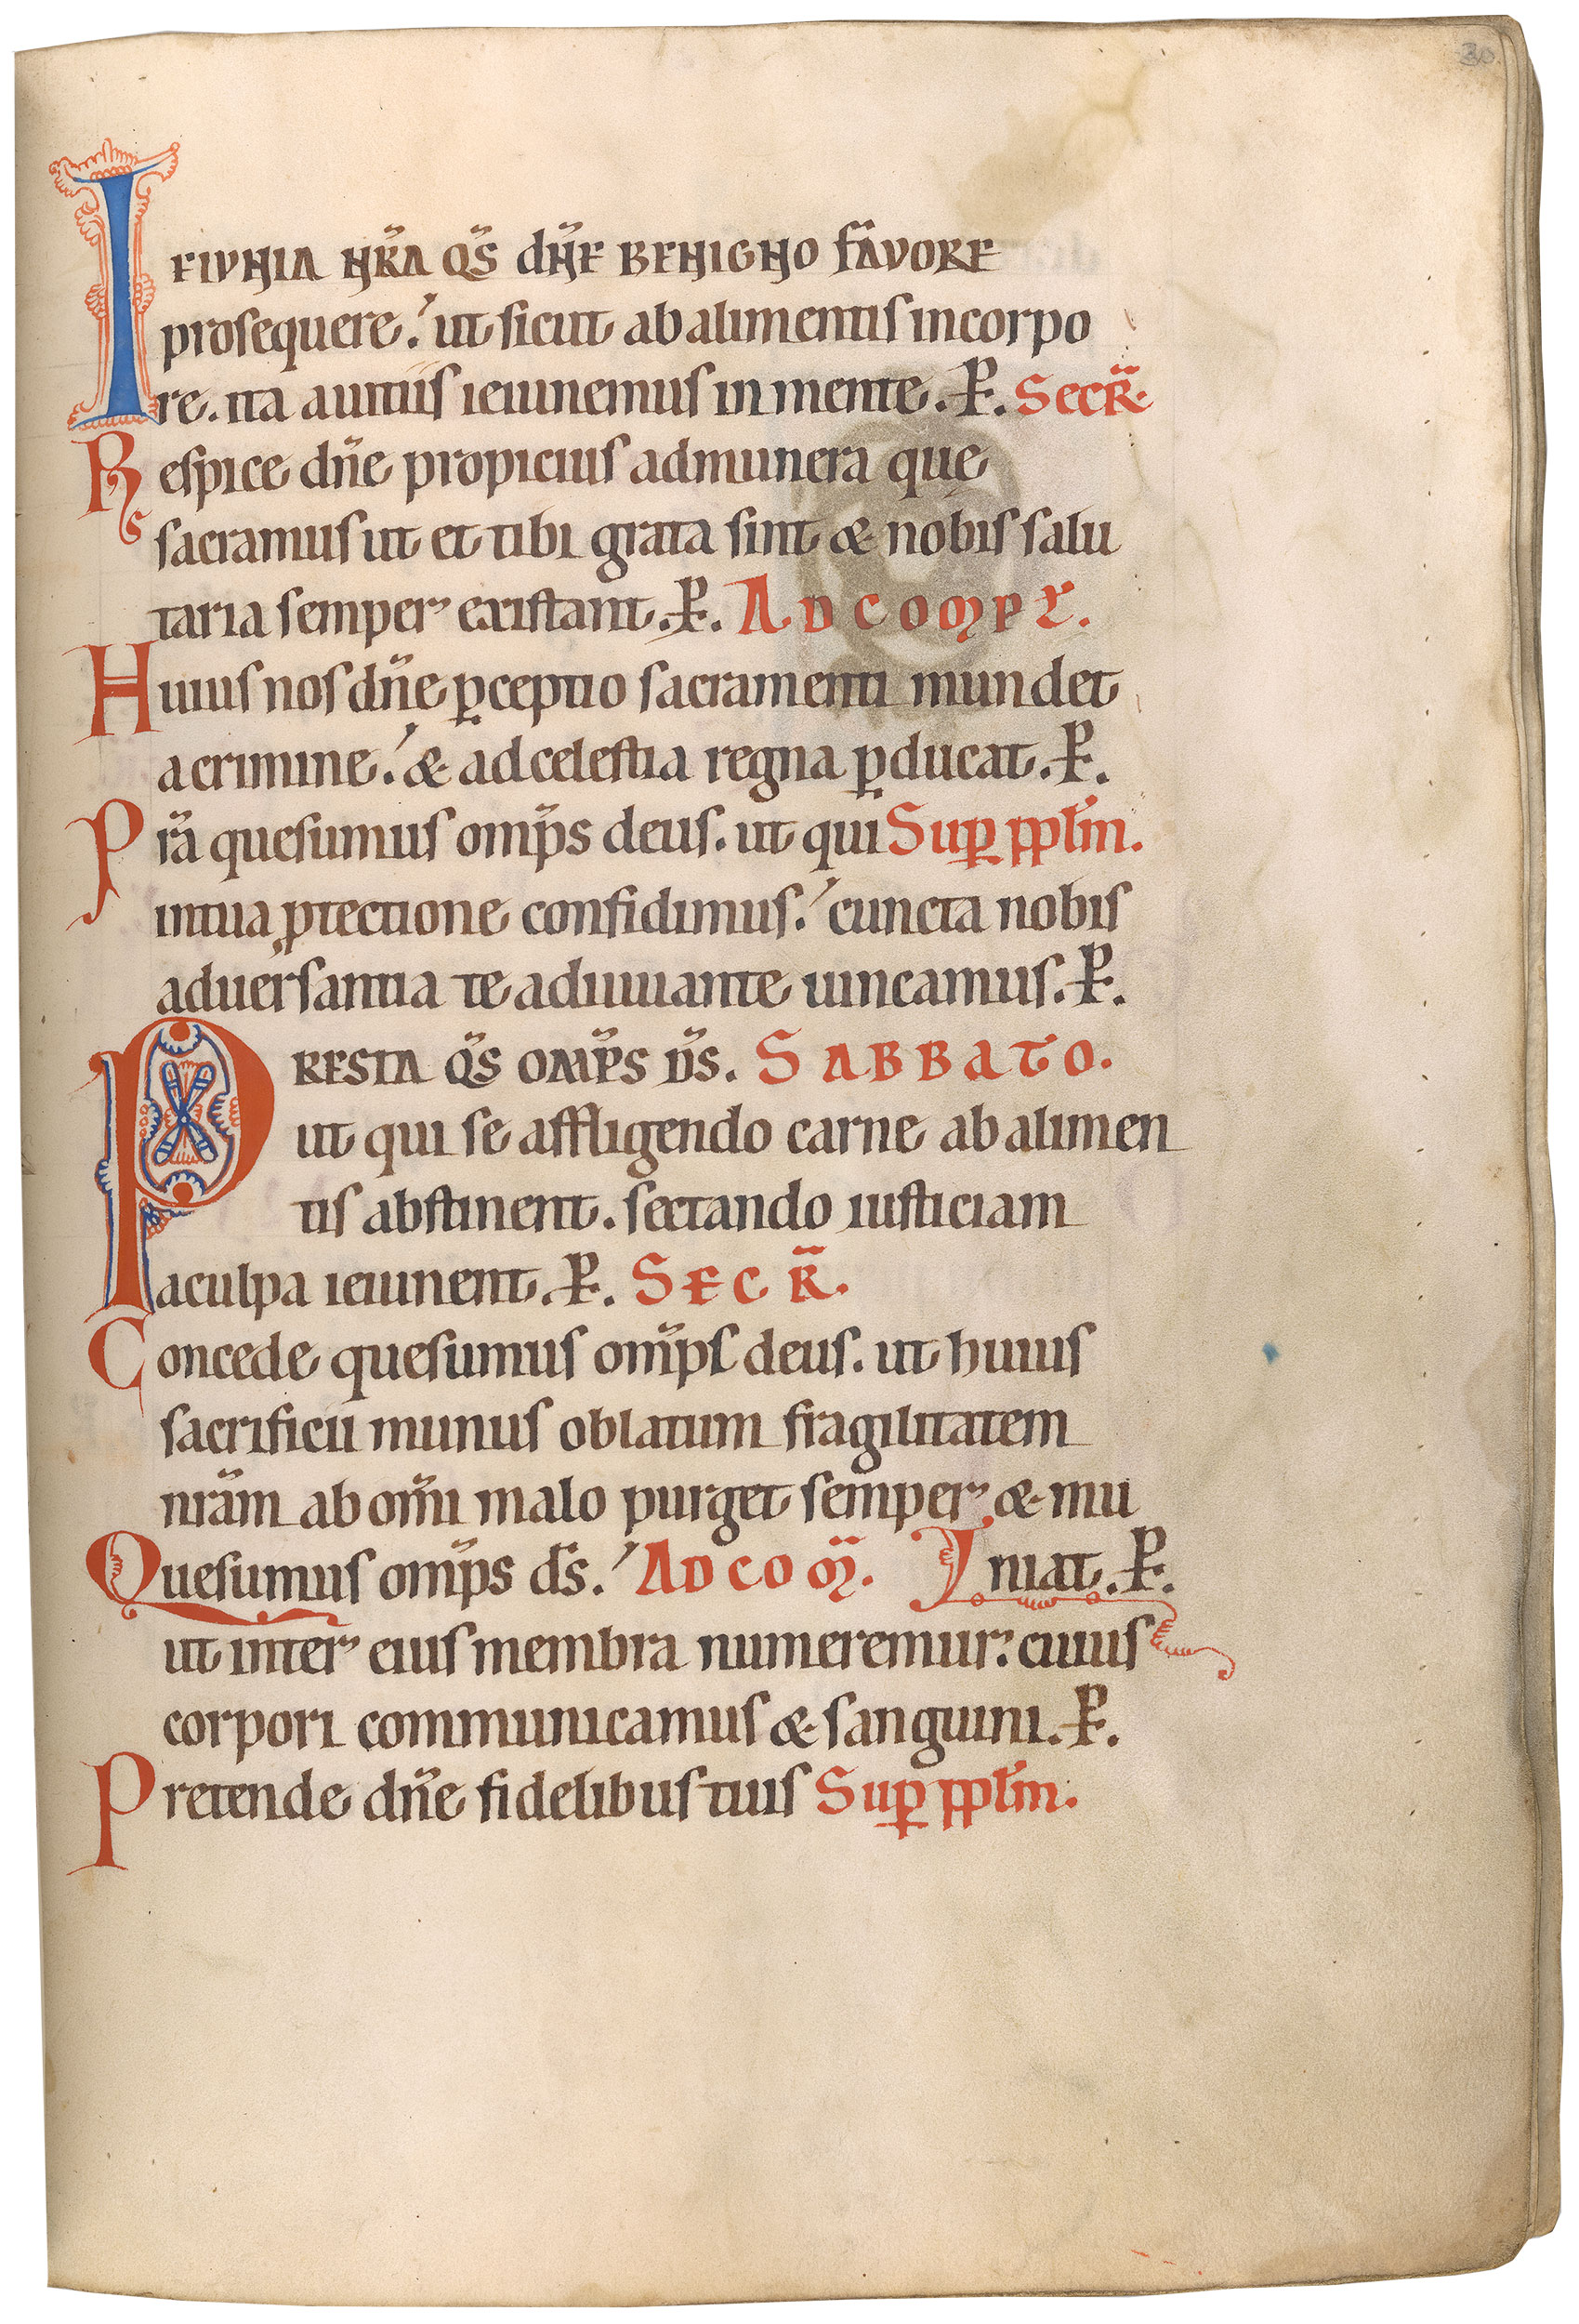 30.
IEIUNIA NR̃A QS̃ dÑE BENIGNO fÃVORE
prosequere. ut sicut ab alimentis in corpo
re. ita a uitiis ieiunemus in mente. P. SecR̃.
Respice dñe propicius ad munera quę
sacramus ut et tibi grata sint & nobis salu
taria semper existant. P. AD COMPL.
Huius nos dñe ꝑceptio sacramenti mundet
a crimine. & ad celestia regna ꝑducat. P.
Prã quesumus omp̃s deus. ut qui Suꝑ pplm̃.
in tua ꝓtectione confidimus. cuncta nobis
aduersantia te adiuuante uincamus. P.
PRESTA QS̃ OMP̃S DS̃. SABBATO.
ut qui se affligendo carne ab alimen
tis abstinent. sectando iusticiam
a culpa ieiunent. P. SECR̃.
Concede quesumus omp̃s deus. ut huius
sacrificii munus oblatum fragilitatem
nrãm ab om̃i malo purget semper & mu
Quesumus omp̃s ds̃. AD COM̃. niat. P.
ut inter eius membra numeremur. cuius
corpori communicamus & sanguini. P.
Pretende dñe fidelibus tuis Suꝑ pplm̃.